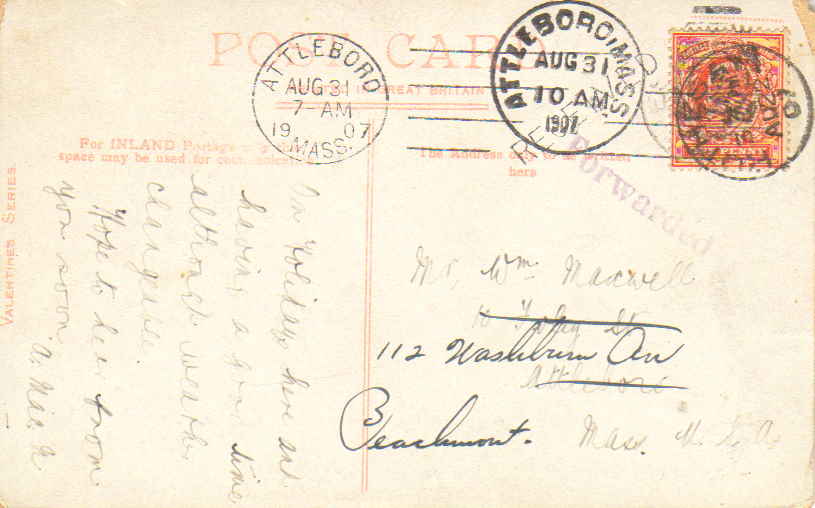 POST CARD
PRINTED IN GREAT BRITAIN
ATTLEBORO
AUG 31
7-AM
19 07
MASS.
ATTLEBORO, MASS
AUG 31
10 AM
1907
PENNY
REC
Forwarded
For INLAND Postage
space may be used for
The Address only to be
here
VALENTINES SERIES.
On Holiday here and
having a good time
although weather
changeable.
Hope to hear from
you soon
Mr. Wm. Maxwell
St
112 Washburn Av
Attleboro
Beachmont.
Mass. U.S.A.